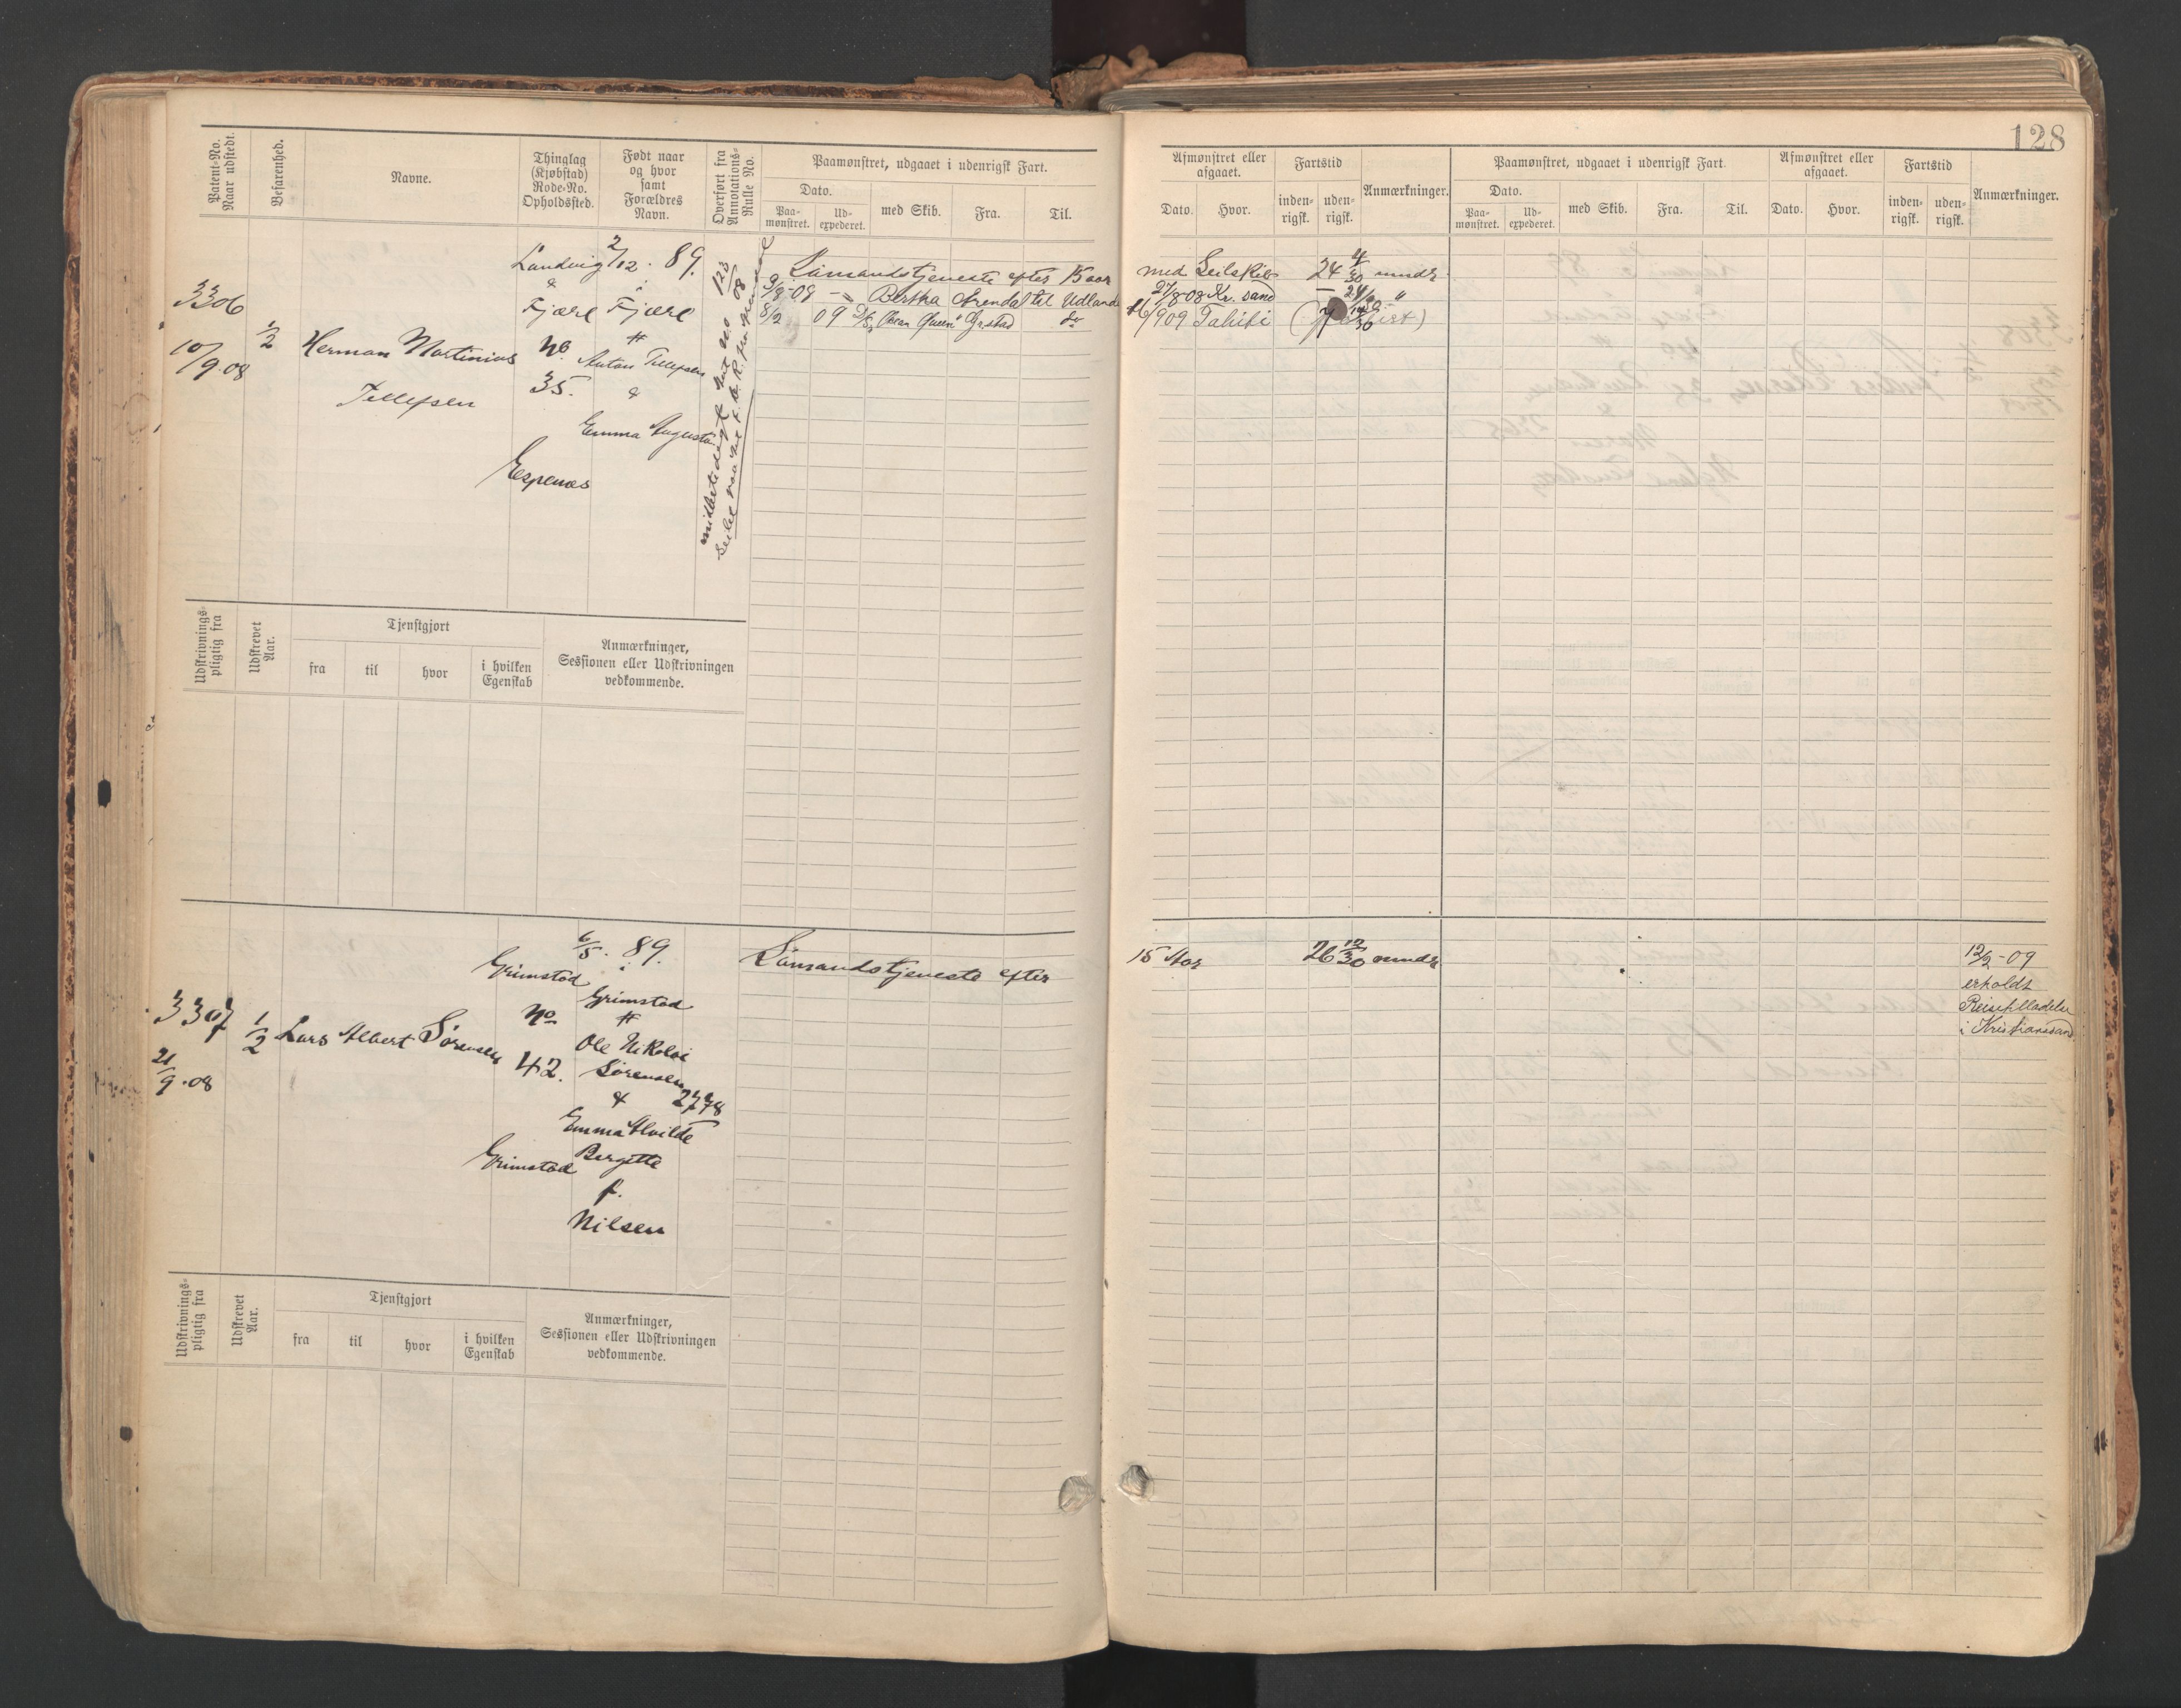 128
Patent-No.
Naar udstedt.
Befarenhed.
Navne.
Thinglag
(Kjøbstad)
Rode-No.
Opholdssted.
Født naar
og hvor
samt
Forældres
Navn.
Overført fra
Annotations-
Rulle No.
Paamønstret, udgaaet i udenrigsk Fart.
Dato.
Paa-
mønstret.
Ud-
expederet.
med Skib.
Fra.
Til.
Afmønstret eller
afgaaet.
Dato.
Hvor.
Fartstid
inden-
rigsk.
uden-
rigsk.
Anmærkninger.
Paamønstret, udgaaet i udenrigsk Fart.
Dato.
Paa-
mønstret.
Ud-
expederet.
med Skib.
Fra.
Til.
Afmønstret eller
afgaaet.
Dato.
Hvor.
Fartstid
inden-
rigsk.
uden-
rigsk.
Anmærkninger.
3306
10/9.08
1/2
Herman Martinius
Tellefsen
Landvig
&
Fjære
No
35.
Espenes
2/12. 89.
Fjære
#
Anton Tellefsen
&
Emma Augusta
123/08
Sømandstjeneste efter 15 aar med Seilskib 24 4/30 mndr
3/8-08 Bertha Arendal til Udlandet 27/8-08 Kr. sand — 24/30 "
8/2 09 Ocean Queen Gr.stad do 16/909 Tahiti
Udskrivnings-
pligtig fra
Udskrevet
Aar.
Tjenstgjort
fra
til
hvor
i hvilken
Egenskab
Anmærkninger,
Sessionen eller Udskrivningen
vedkommende.
3307
21/9.08
1/2
Lars Albert Sørensen
Grimstad
No
42.
Grimstad
6/5. 89.
Grimstad
#
Ole Nikolai
Sørensen
&
2778
Emma Alvilde
Bergitte
f.
Nilsen
Sømandstjeneste efter 15 Aar 26 12/30 mndr
12/2-09
erholdt
Reisetilladelse
i Kristianssand
Udskrivnings-
pligtig fra
Udskrevet
Aar.
Tjenstgjort
fra
til
hvor
i hvilken
Egenskab
Anmærkninger,
Sessionen eller Udskrivningen
vedkommende.